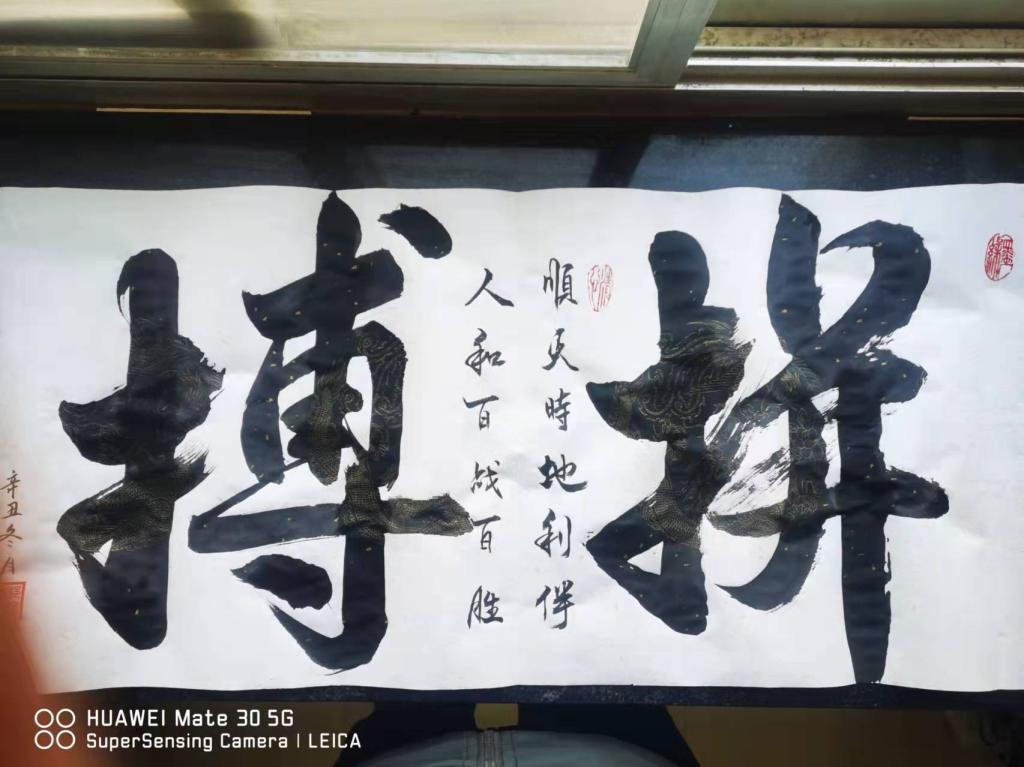 拼
順天時地利伴
人和百战百胜
搏
辛丑冬月
HUAWEI Mate 30 5G
SuperSensing Camera | LEICA